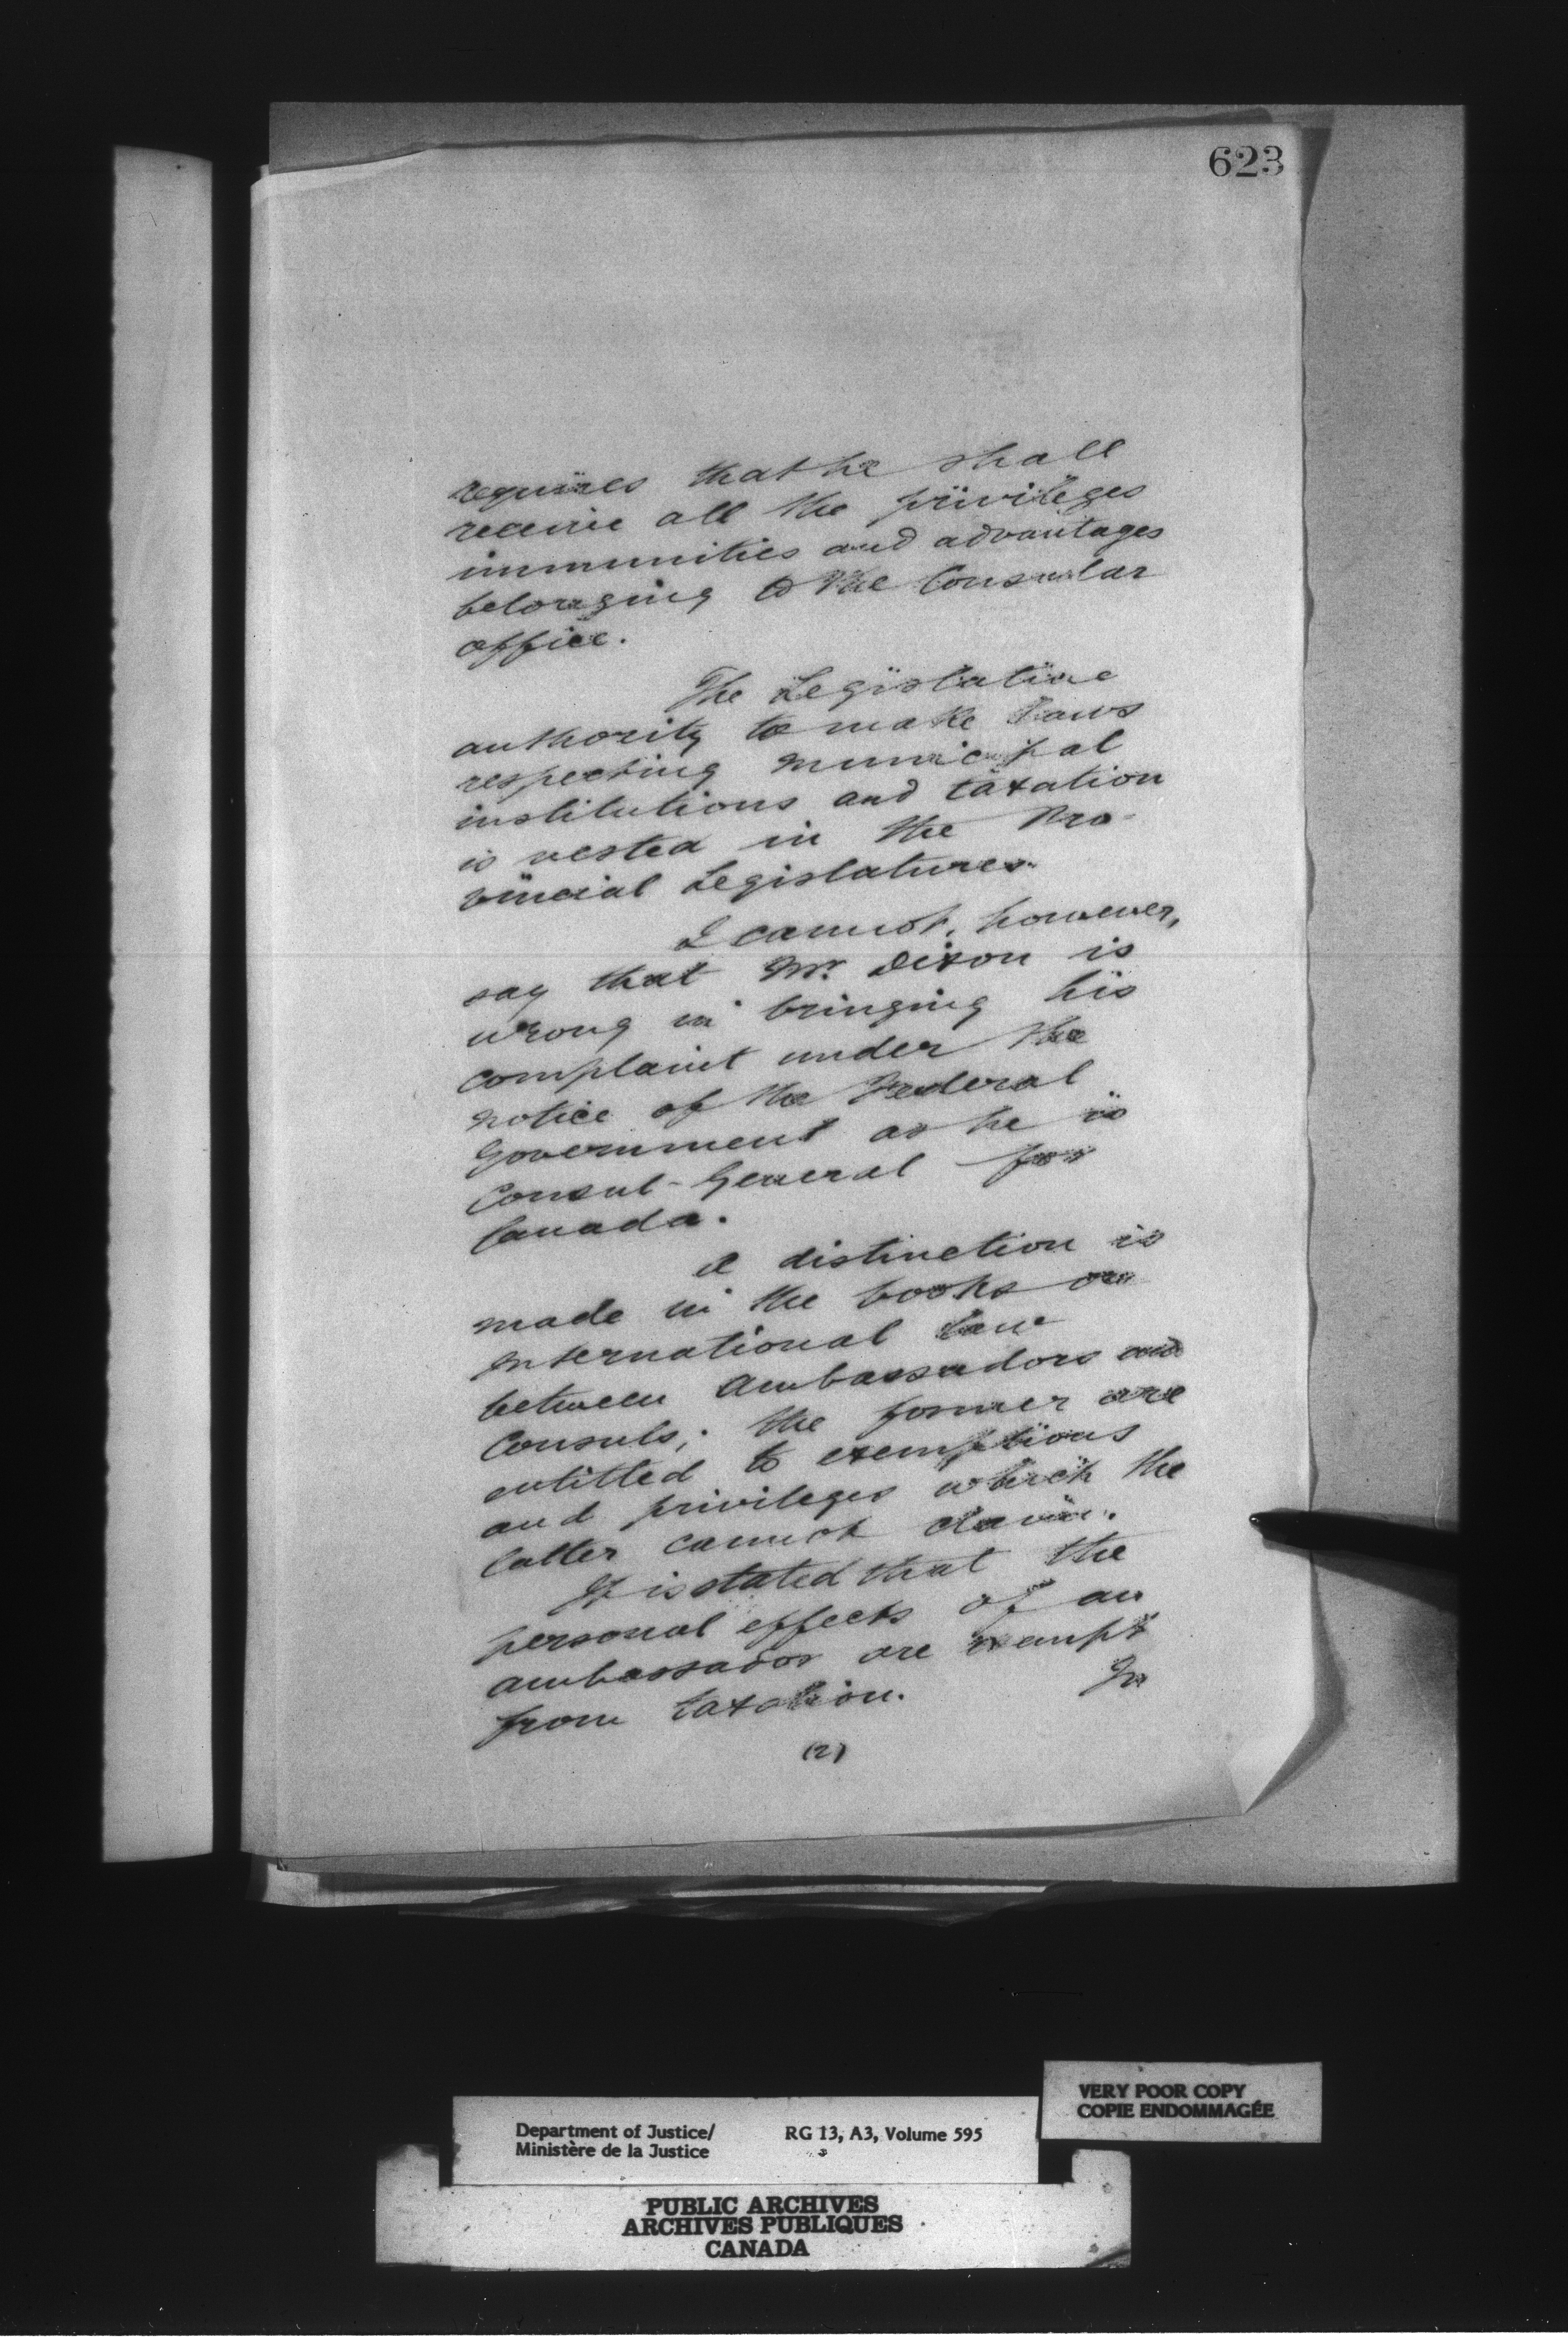 623
requires that he shall
receive all the privileges
immunities and advantages
belonging to the Consular
office.
The Legislative
authority to make laws
respecting municipal
institutions and taxation
is vested in the Pro-
vincial Legislatures.
I cannot, however,
say that Mr. Dixon is
wrong in bringing his
complaint under the
notice of the Federal
Government as he is
Consul-General for
Canada.
A distinction is
made in the books on
International law
between Ambassadors and
Consuls; the former are
entitled to exemptions
and privileges which the
latter cannot claim.
It is stated that the
personal effects of an
ambassador are exempt
from taxation. In
(2)
VERY POOR COPY
COPIE ENDOMMAGÉE
Department of Justice/ RG 13, A3, Volume 595
Ministère de la Justice
PUBLIC ARCHIVES
ARCHIVES PUBLIQUES
CANADA